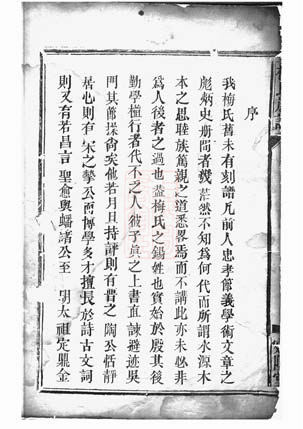 序
我梅氏舊未有刻譜凡前人忠孝節義學術文章之
彪炳史册間者幾茫然不知為何代而所謂水源木
本之思睦族篤親之道悉畧焉而不講此亦未必非
為人後者之過也蓋梅氏之錫姓也實始於殷其後
勤學植行者代不乏人彼子真之上書直諫避迹吳
門其節操尚矣他若月旦持評則有晉之 陶公恬靜
居心則有 宋之摯公而博學多才擅長於詩古文詞
則又有若昌言 聖俞與蟠諸公至 明太祖定鼎金